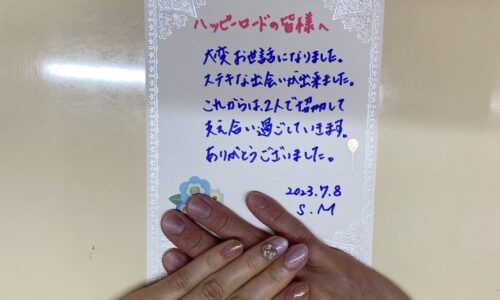 ハッピーロードの皆様へ
大変お世話になりました。
ステキな出会いが出来ました。
これからは、2人で協力して
支え合い過ごしていきます。
ありがとうございました。
2023.7.8
S.M